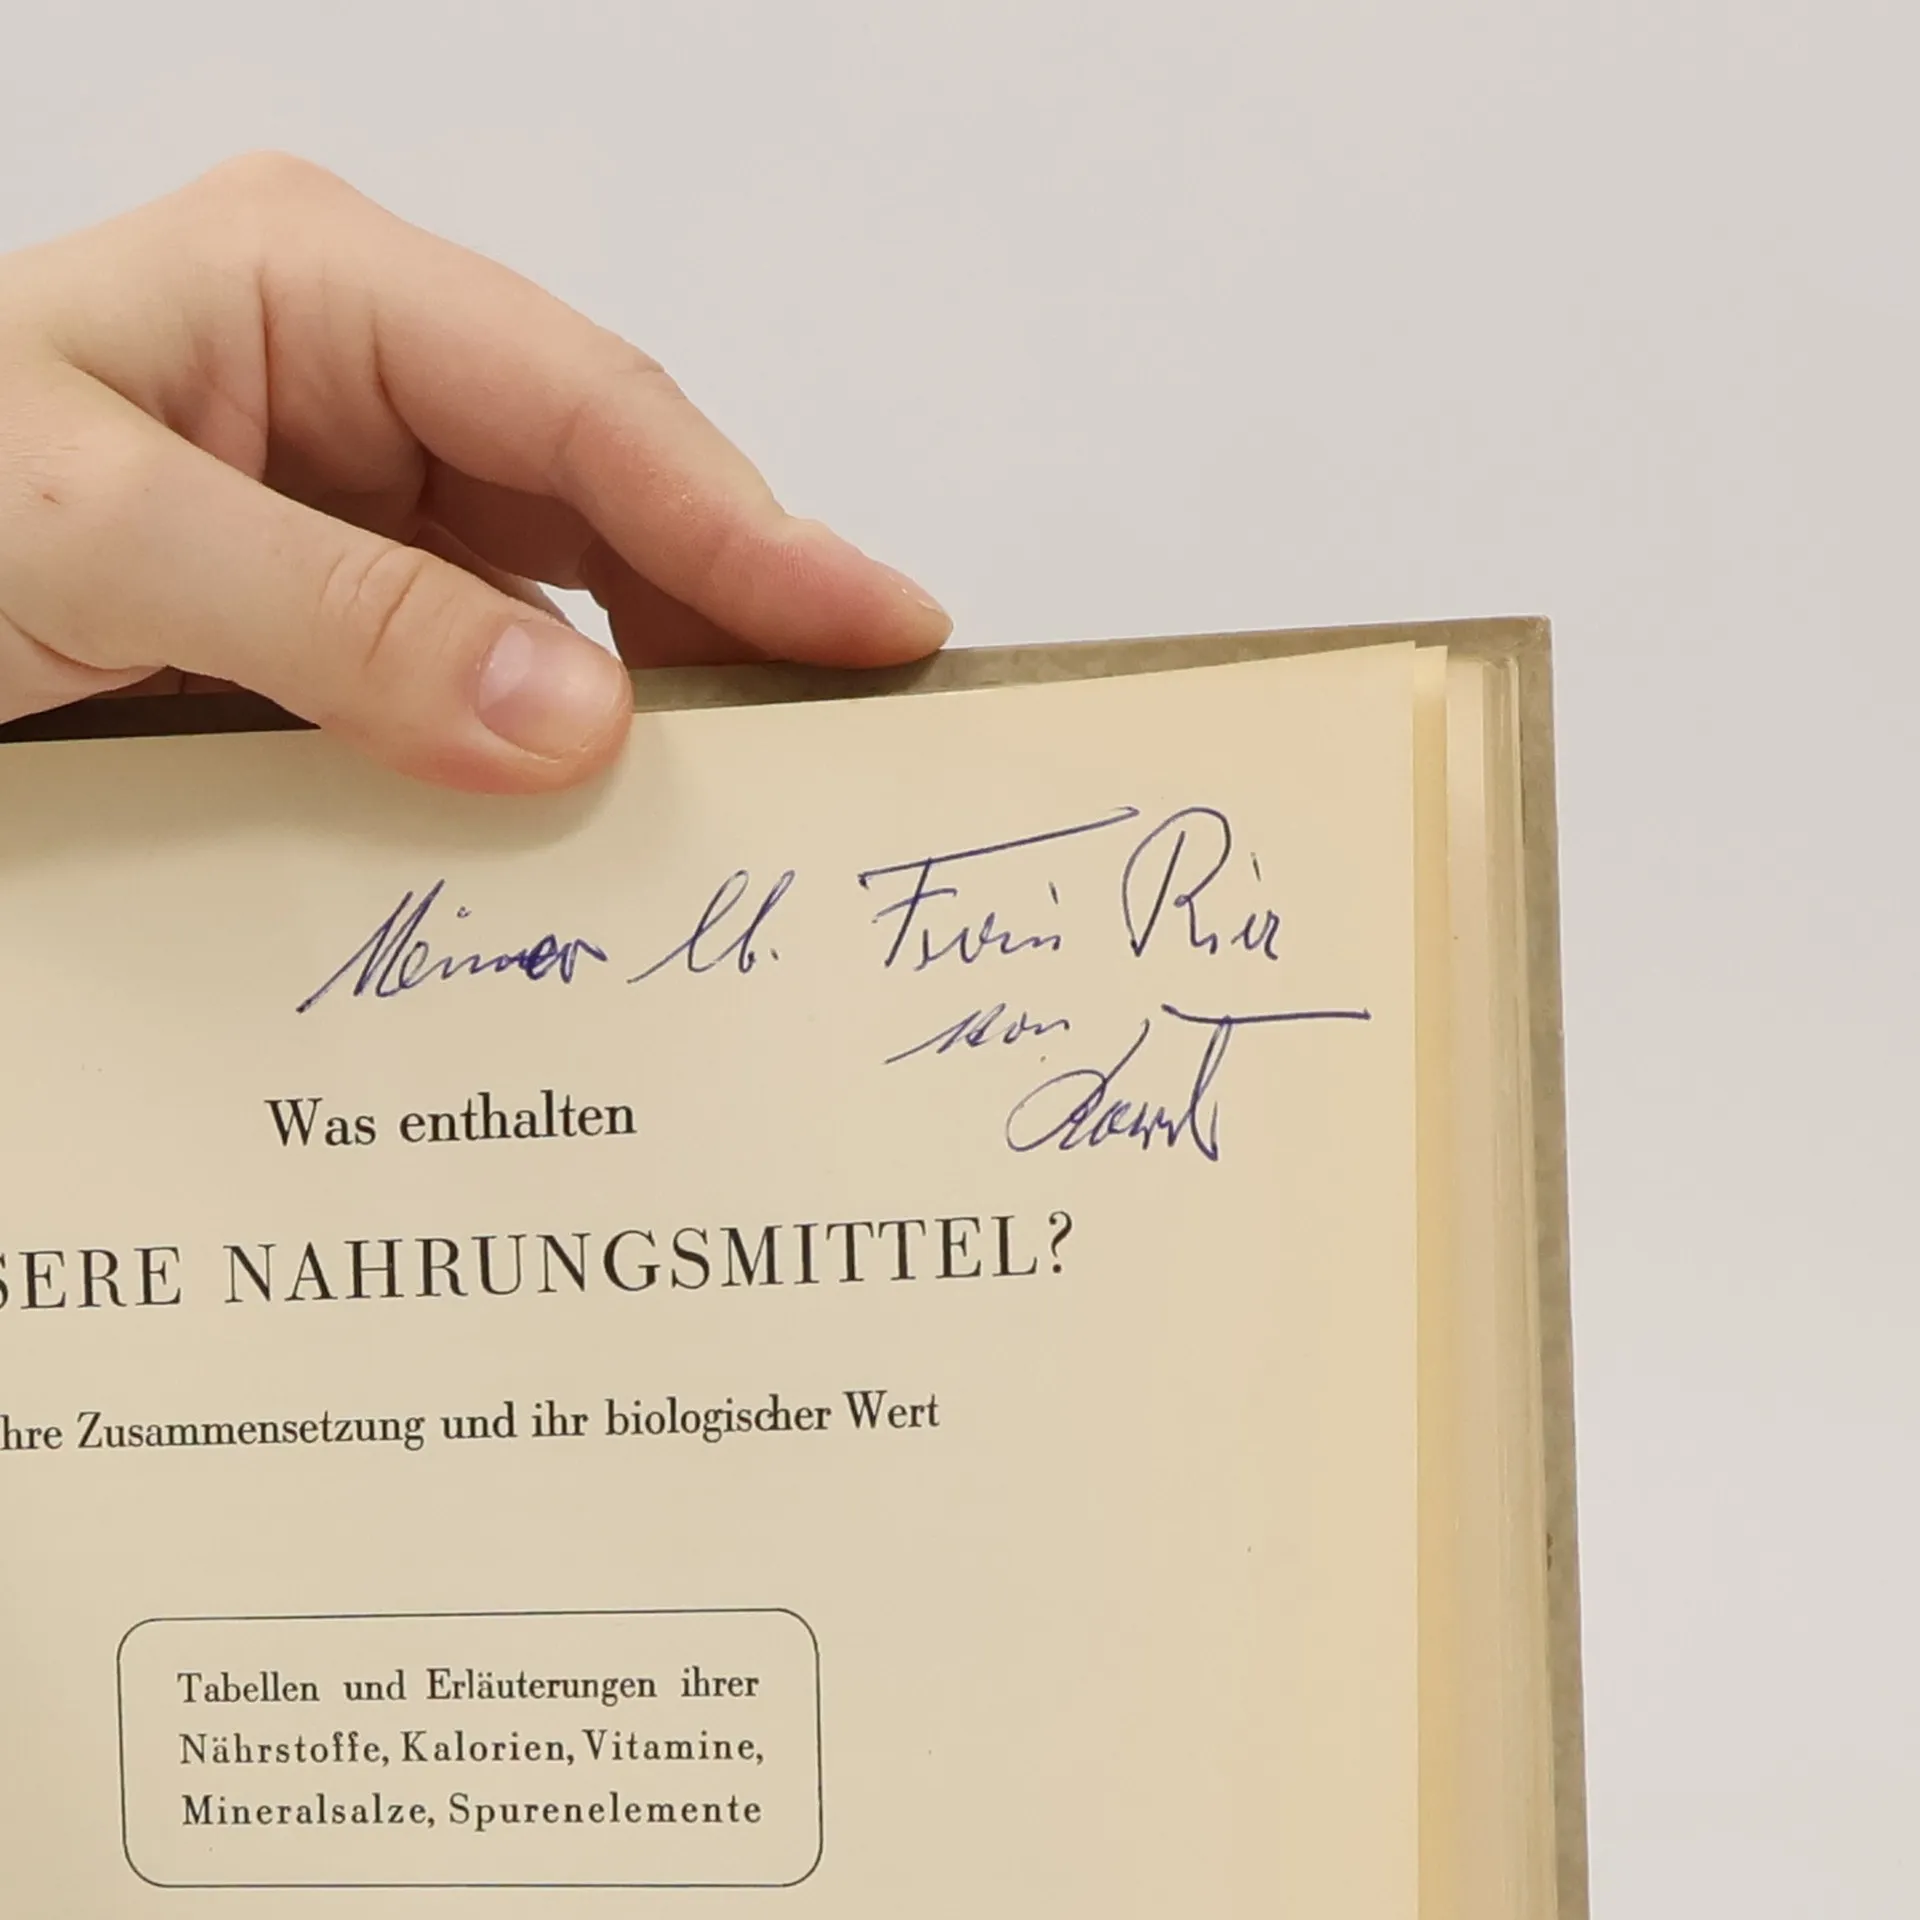 Meiner lb.
von
Was enthalten
SERE NAHRUNGSMITTEL?
hre Zusammensetzung und ihr biologischer Wert
Tabellen und Erläuterungen ihrer
Nährstoffe, Kalorien, Vitamine,
Mineralsalze, Spurenelemente